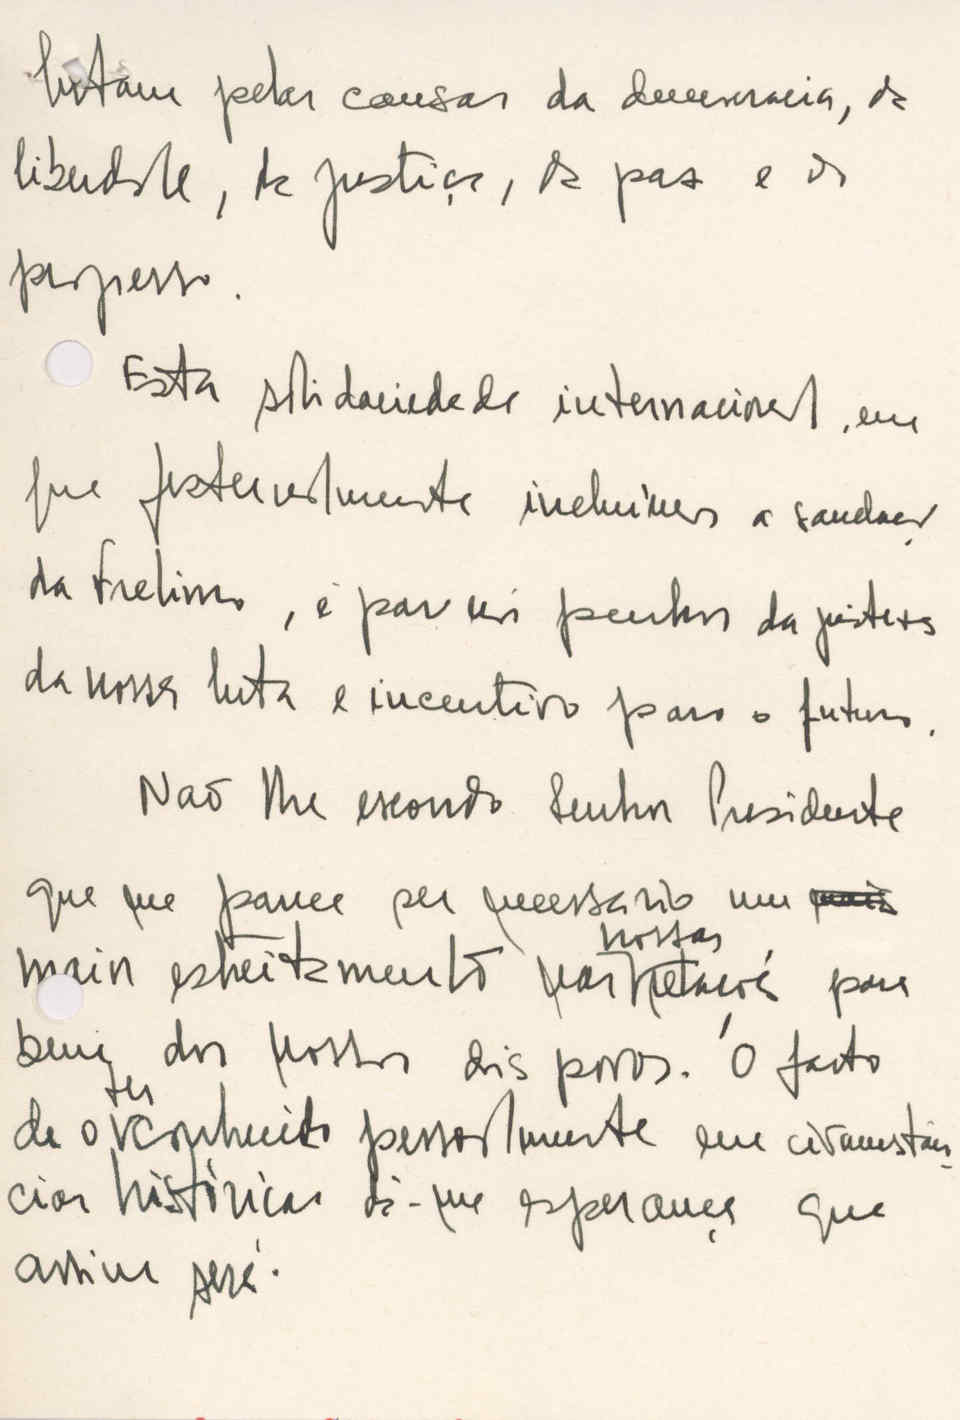 lutam pelas causas da democracia, da
liberdade, da justiça, da paz e do
progresso.
Esta solidariedade internacional, em
que fraternalmente incluímos a saudação
da Frelimo, é para nós penhor da justeza
da nossa luta e incentivo para o futuro.
Não lhe escondo Senhor Presidente
que me parece ser necessário um mais
mais estreitamento nas nossas relações para
bem dos nossos dois povos. O facto
de o ter conhecido pessoalmente em circunstân-
cias históricas dá-me esperança que
assim será.